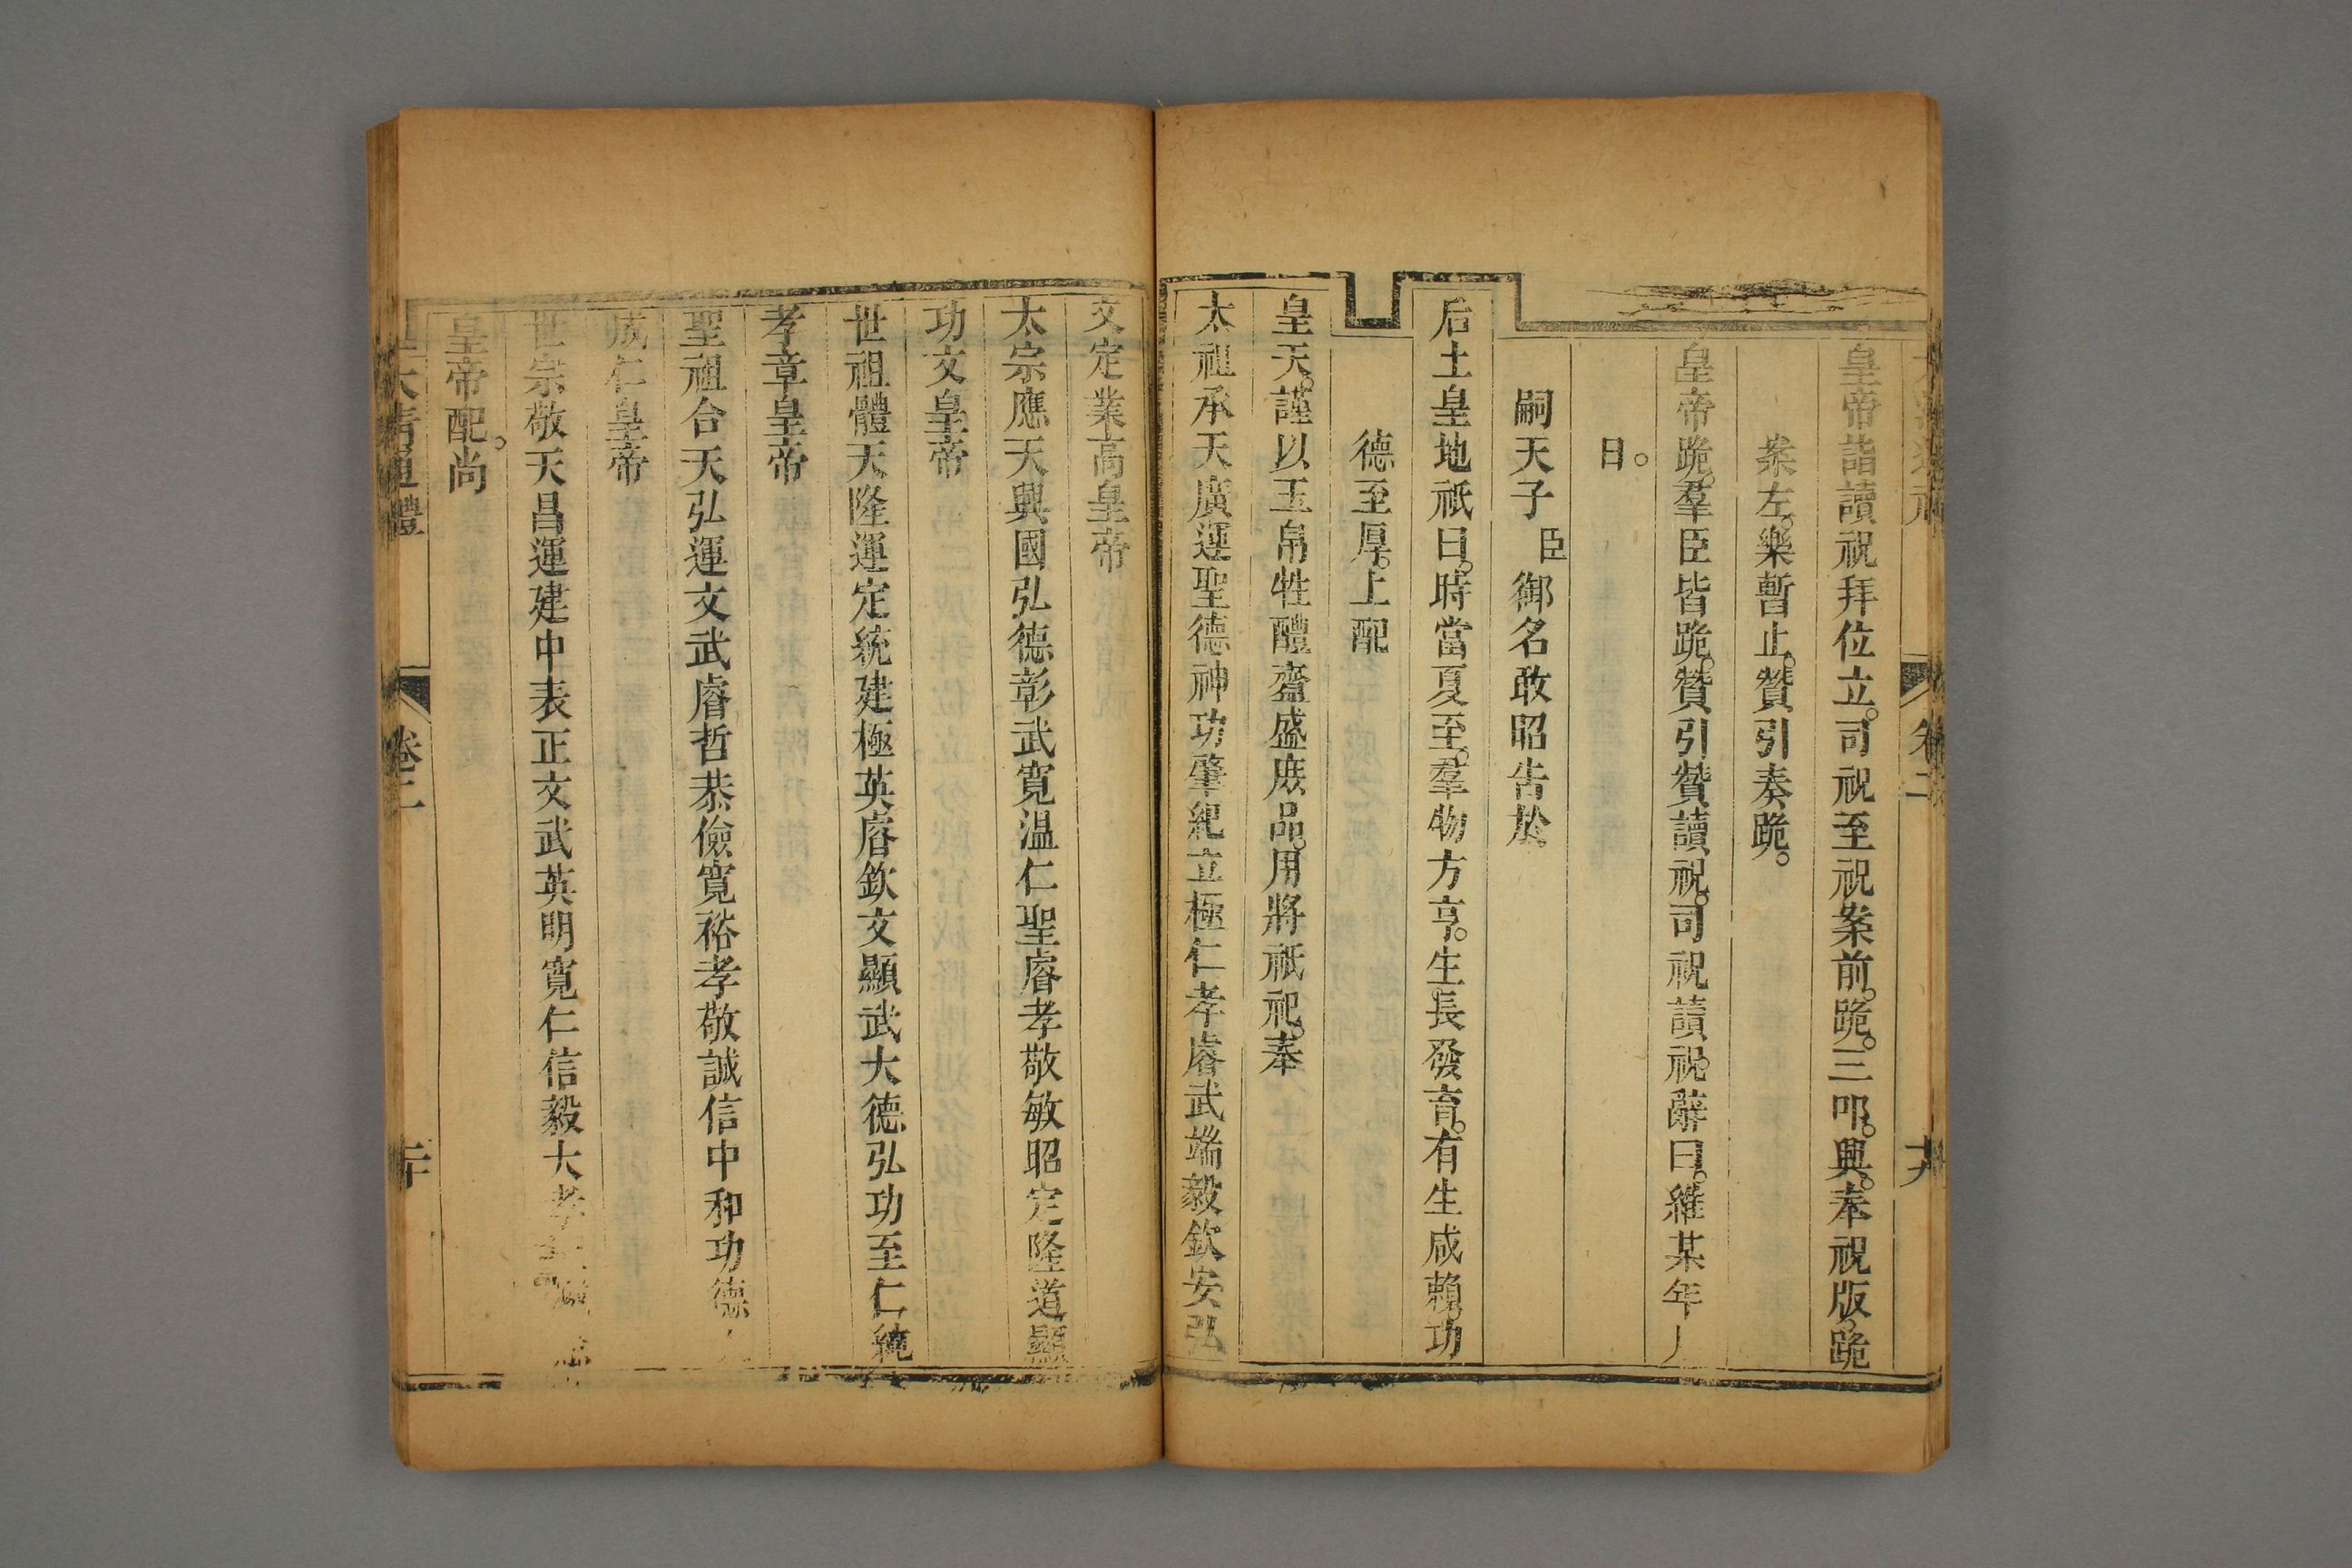 皇帝詣讀祝拜位立。司祝至祝案前。跪。三叩。興。奉祝版。跪
案左。樂暫止。贊引奏跪。
皇帝跪。羣臣皆跪。贊引贊讀祝。司祝讀祝。辭曰。維某年
日。
嗣天子臣御名敢昭告於
后土皇地祇曰。時當夏至。羣物方亨。生長發育。有生咸賴。功
德至厚。上配
皇天。謹以玉帛牲醴齍盛庶品。用將祇祀。奉
太祖承天廣運聖德神功肇紀立極仁孝睿武端毅欽安弘
文定業高皇帝
太宗應天興國弘德彰武寬温仁聖睿孝敬敏昭定隆道顯
功文皇帝
世祖體天隆運定統建極英睿欽文顯武大德弘功至仁純
孝章皇帝
聖祖合天弘運文武睿哲恭儉寬裕孝敬誠信中和功德
成仁皇帝
世宗敬天昌運建中表正文武英明寬仁信毅大孝
皇帝配。尚
大清通禮
卷二